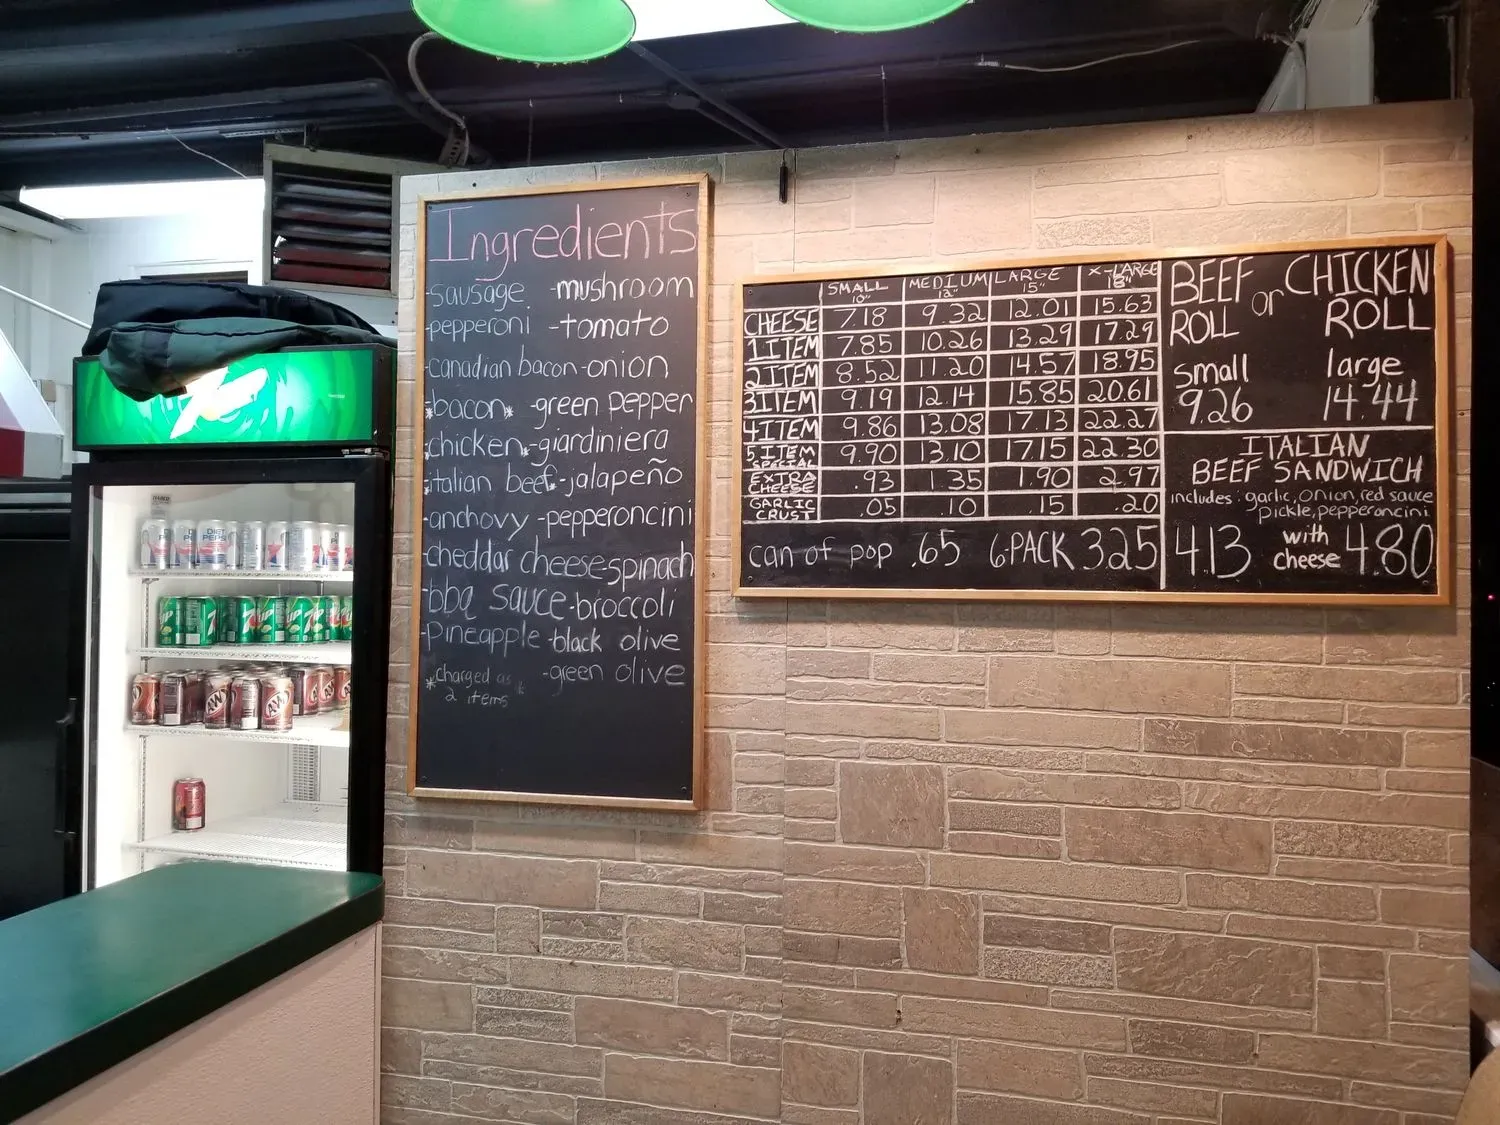 Ingredients
-sausage -mushroom
-pepperoni -tomato
-canadian bacon -onion
*bacon* -green pepper
*chicken* -giardiniera
*italian beef* -jalapeño
-anchovy -pepperoncini
-cheddar cheese -spinach
-bbq sauce -broccoli
-pineapple -black olive
-green olive
*charged as
2 items*
SMALL MEDIUM LARGE X-LARGE
10" 12" 15" 18"
CHEESE 7.18 9.32 12.01 15.63
1 ITEM 7.85 10.26 13.29 17.29
2 ITEM 8.52 11.20 14.57 18.95
3 ITEM 9.19 12.14 15.85 20.61
4 ITEM 9.86 13.08 17.13 22.27
5 ITEM SPECIAL 9.90 13.10 17.15 22.30
EXTRA CHEESE .93 1.35 1.90 2.97
GARLIC CRUST .05 .10 .15 .20
can of pop .65 6-PACK 3.25
BEEF ROLL or CHICKEN ROLL
small large
9.26 14.44
ITALIAN
BEEF SANDWICH
includes: garlic, onion, red sauce
pickle, pepperoncini
4.13 with cheese 4.80
7
DIET
PEPSI
7UP
A&W
A&W